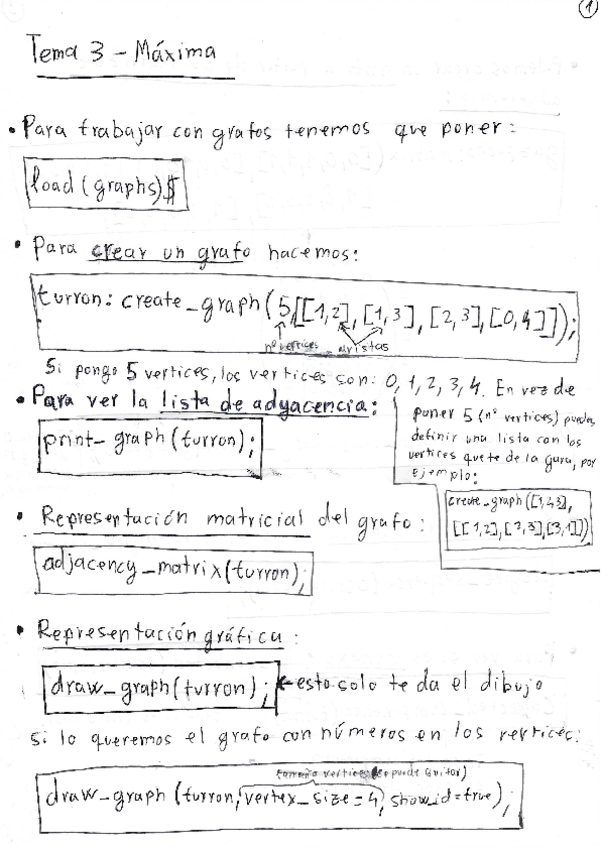 1
Tema 3 - Máxima
• Para trabajar con grafos tenemos que poner:
load(graphs)$
• Para crear un grafo hacemos:
turron: create_graph(5,[[1,2],[1,3],[2,3],[0,4]]);
nº vertices aristas
Si pongo 5 vertices, los vertices son: 0, 1, 2, 3, 4. En vez de
poner 5 (nº vertices) puedes
definir una lista con los
vertices que te de la gana, por
ejemplo:
create_graph([1,2,3],
[[1,2],[2,3],[3,1]])
• Para ver la lista de adyacencia:
print_graph(turron);
• Representación matricial del grafo:
adjacency_matrix(turron);
• Representación gráfica:
draw_graph(turron); ← esto solo te da el dibujo
si lo queremos el grafo con números en los vertices:
tamaño vertices (se puede quitar)
draw_graph (turron, vertex_size=4, show_id=true);